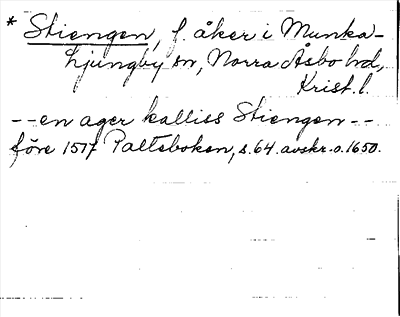 * Stiengen, f. åker i Munka-
Ljungby sn, Norra Åsbo hd,
Krist. l.
-- en ager kalliss Stiengen --
före 1517 Palteboken, s. 64. avskr. o. 1650.